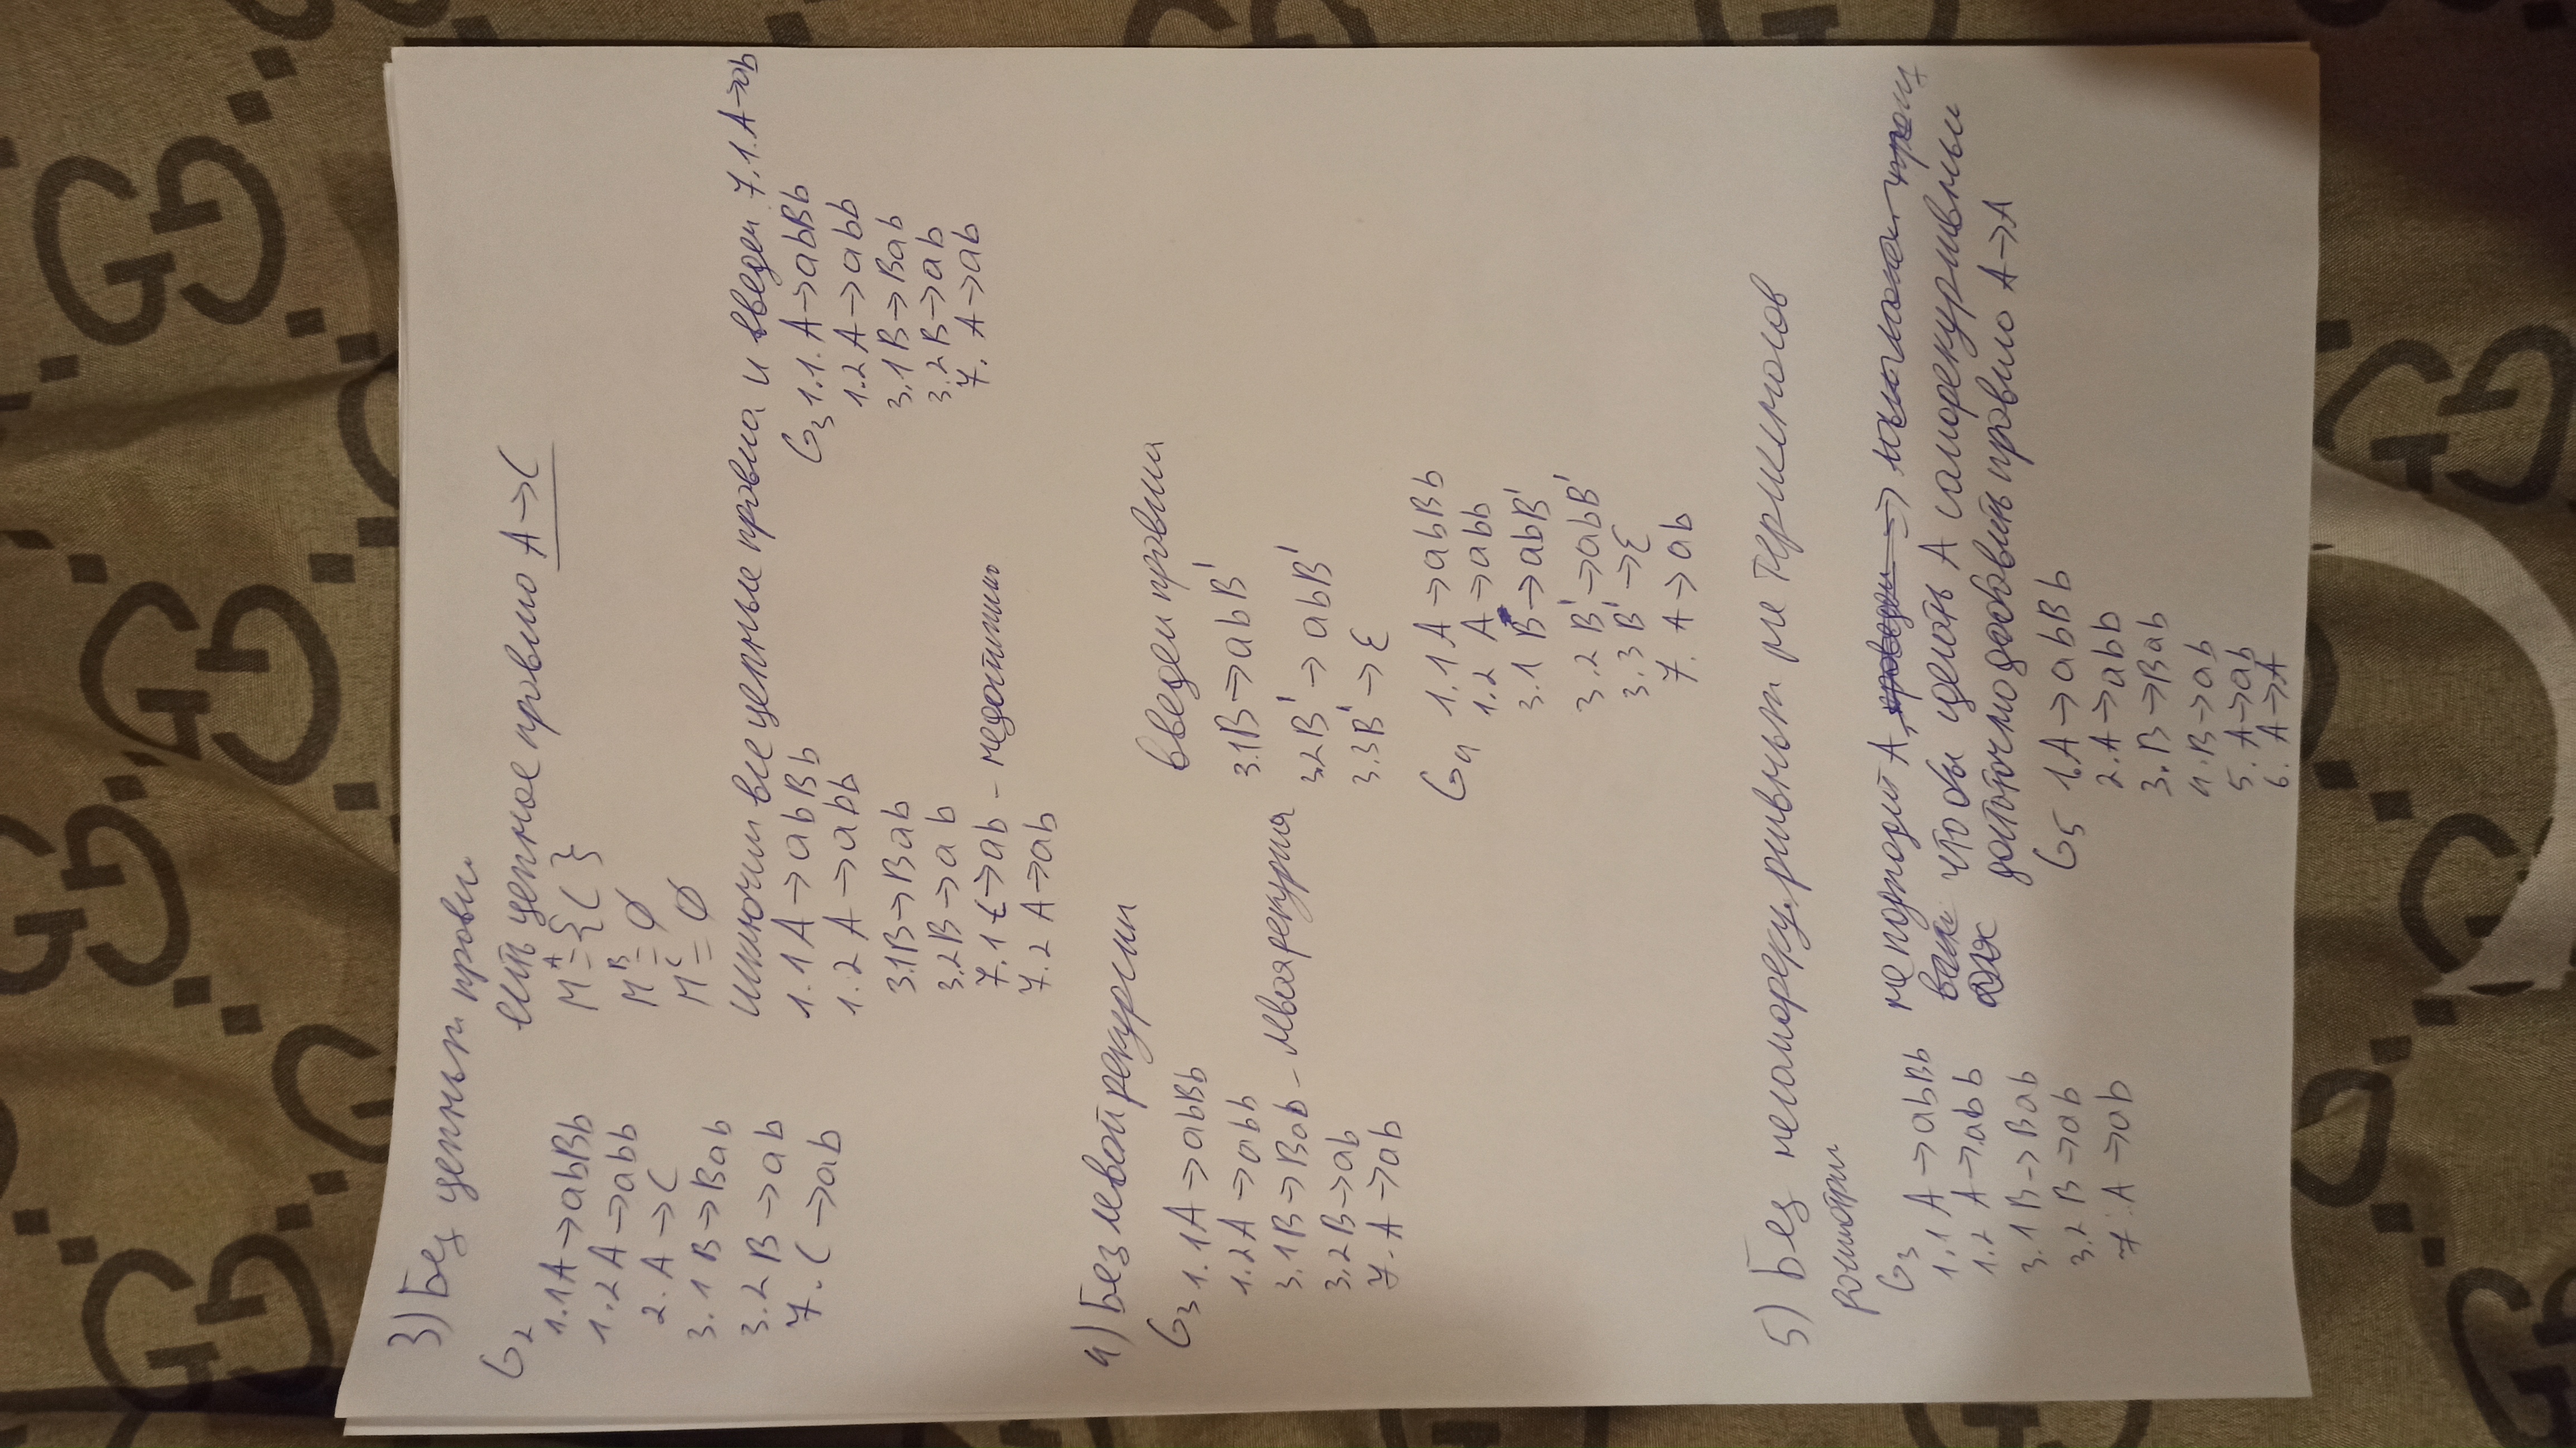 3) Без цепных правил
G₂
1.1 A → abBb
1.2 A → abb
2. A → C
3.1 B → Bab
3.2 B → ab
7. C → ab
есть цепное правило A → C
Mᴬ = {C}
Mᴮ = ∅
Mᶜ = ∅
исключим все цепные правила и введем 7.1. A → ab
1.1 A → abBb
1.2 A → abb
3.1 B → Bab
3.2 B → ab
7.1 C → ab – недостижимо
7.2 A → ab
G₃ 1.1. A → abBb
1.2 A → abb
3.1 B → Bab
3.2 B → ab
7. A → ab
4) Без левой рекурсии
G₃ 1.1 A → abBb
1.2 A → abb
3.1 B → Bab – левая рекурсия
3.2 B → ab
7. A → ab
введем правила
3.1 B → abB'
3.2 B' → abB'
3.3 B' → ε
G₄ 1.1 A → abBb
1.2 A → abb
3.1 B → abB'
3.2 B' → abB'
3.3 B' → ε
7. A → ab
5) Без несаморекурсивных не терминалов
рассмотрим
G₃
1.1 A → abBb
1.2 A → abb
3.1 B → Bab
3.2 B → ab
7. A → ab
не подходит A,
чтобы сделать A саморекурсивным
достаточно добавить правило A → A
G₅ 1. A → abBb
2. A → abb
3. B → Bab
4. B → ab
5. A → ab
6. A → A